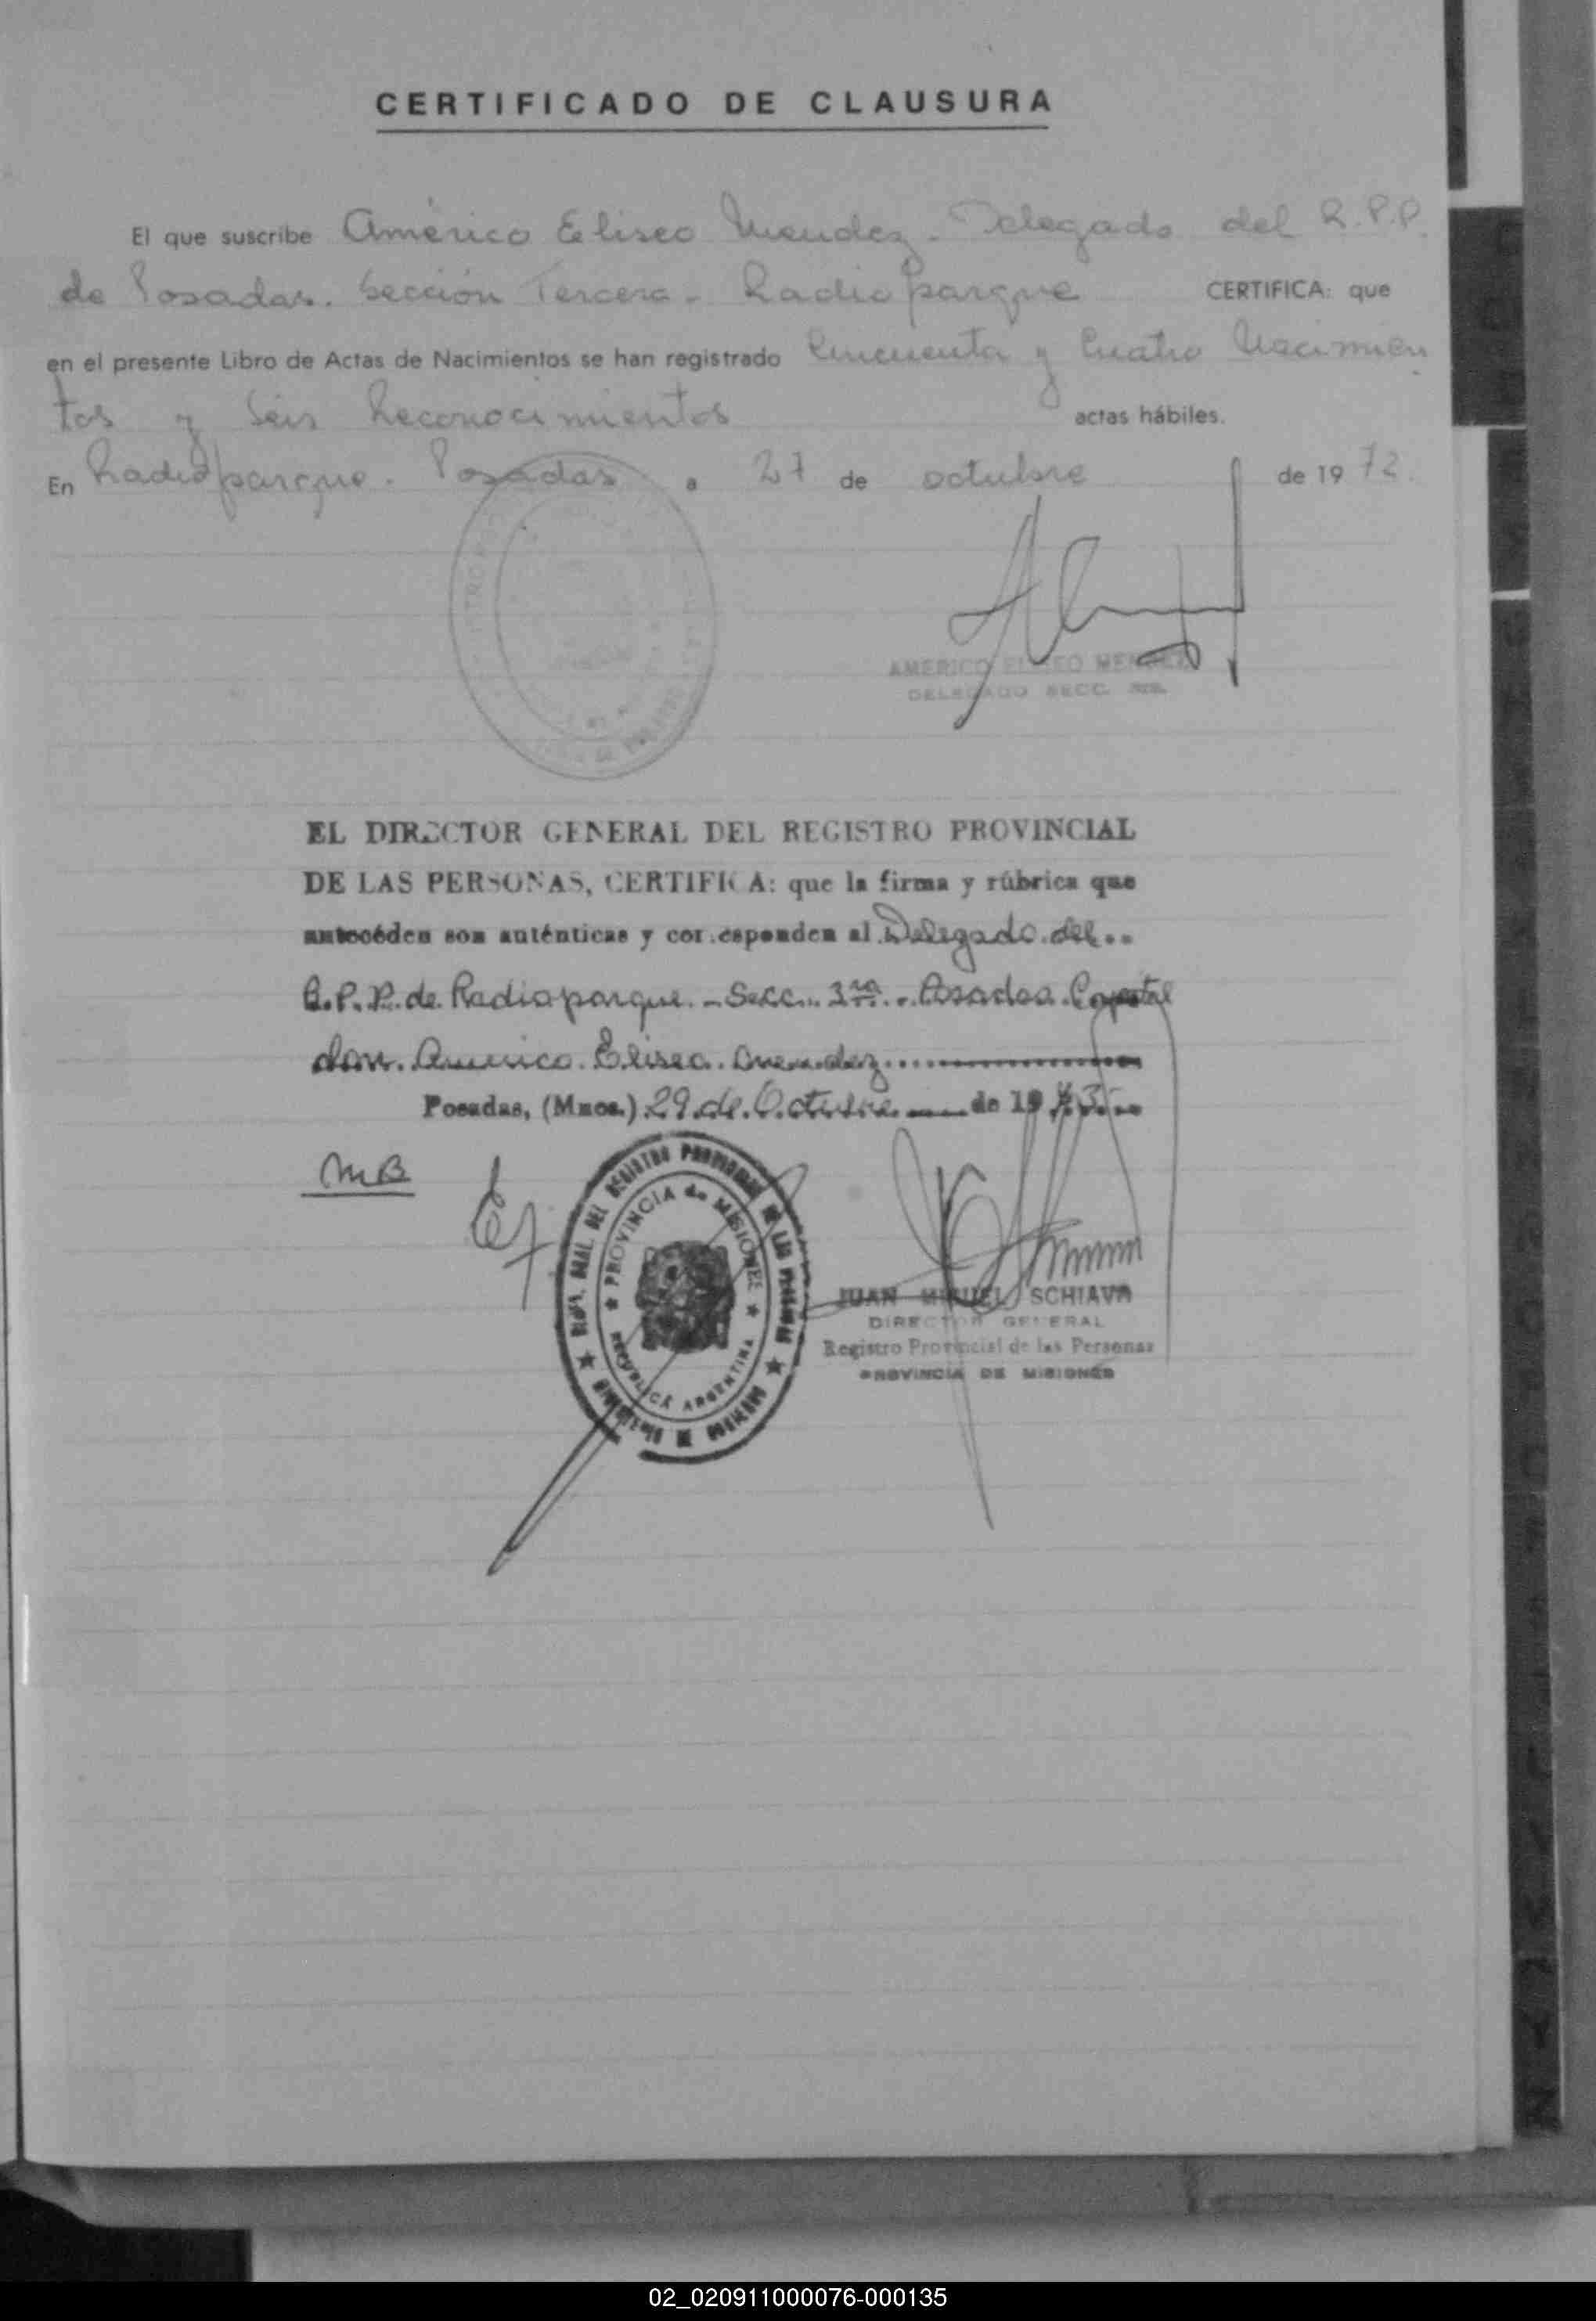 CERTIFICADO DE CLAUSURA
El que suscribe Américo Eliseo Mendez - Delegado del R.P.P.
de Posadas. Sección Tercera - Radioparque CERTIFICA: que
en el presente Libro de Actas de Nacimientos se han registrado Cincuenta y Cuatro Nacimien
tos y Seis Reconocimientos actas hábiles.
En Radioparque. Posadas a 27 de octubre de 1972.
AMERICO ELISEO MENDEZ
DELEGADO SECC. 3RA.
EL DIRECTOR GENERAL DEL REGISTRO PROVINCIAL
DE LAS PERSONAS, CERTIFICA: que la firma y rúbrica que
anteceden son auténticas y corresponden al Delegado del
R.P.P. de Radioparque - Secc. 3ra - Posadas. Capital
don. Americo. Eliseo. Mendez
Posadas, (Mnes.) 29 de Octubre de 1973
MB
DIR. GRAL. DEL REGISTRO PROVINCIAL DE LAS PERSONAS
PROVINCIA de MISIONES
REPUBLICA ARGENTINA
JUAN MIGUEL SCHIAVA
DIRECTOR GENERAL
Registro Provincial de las Personas
PROVINCIA DE MISIONES
02_020911000076-000135